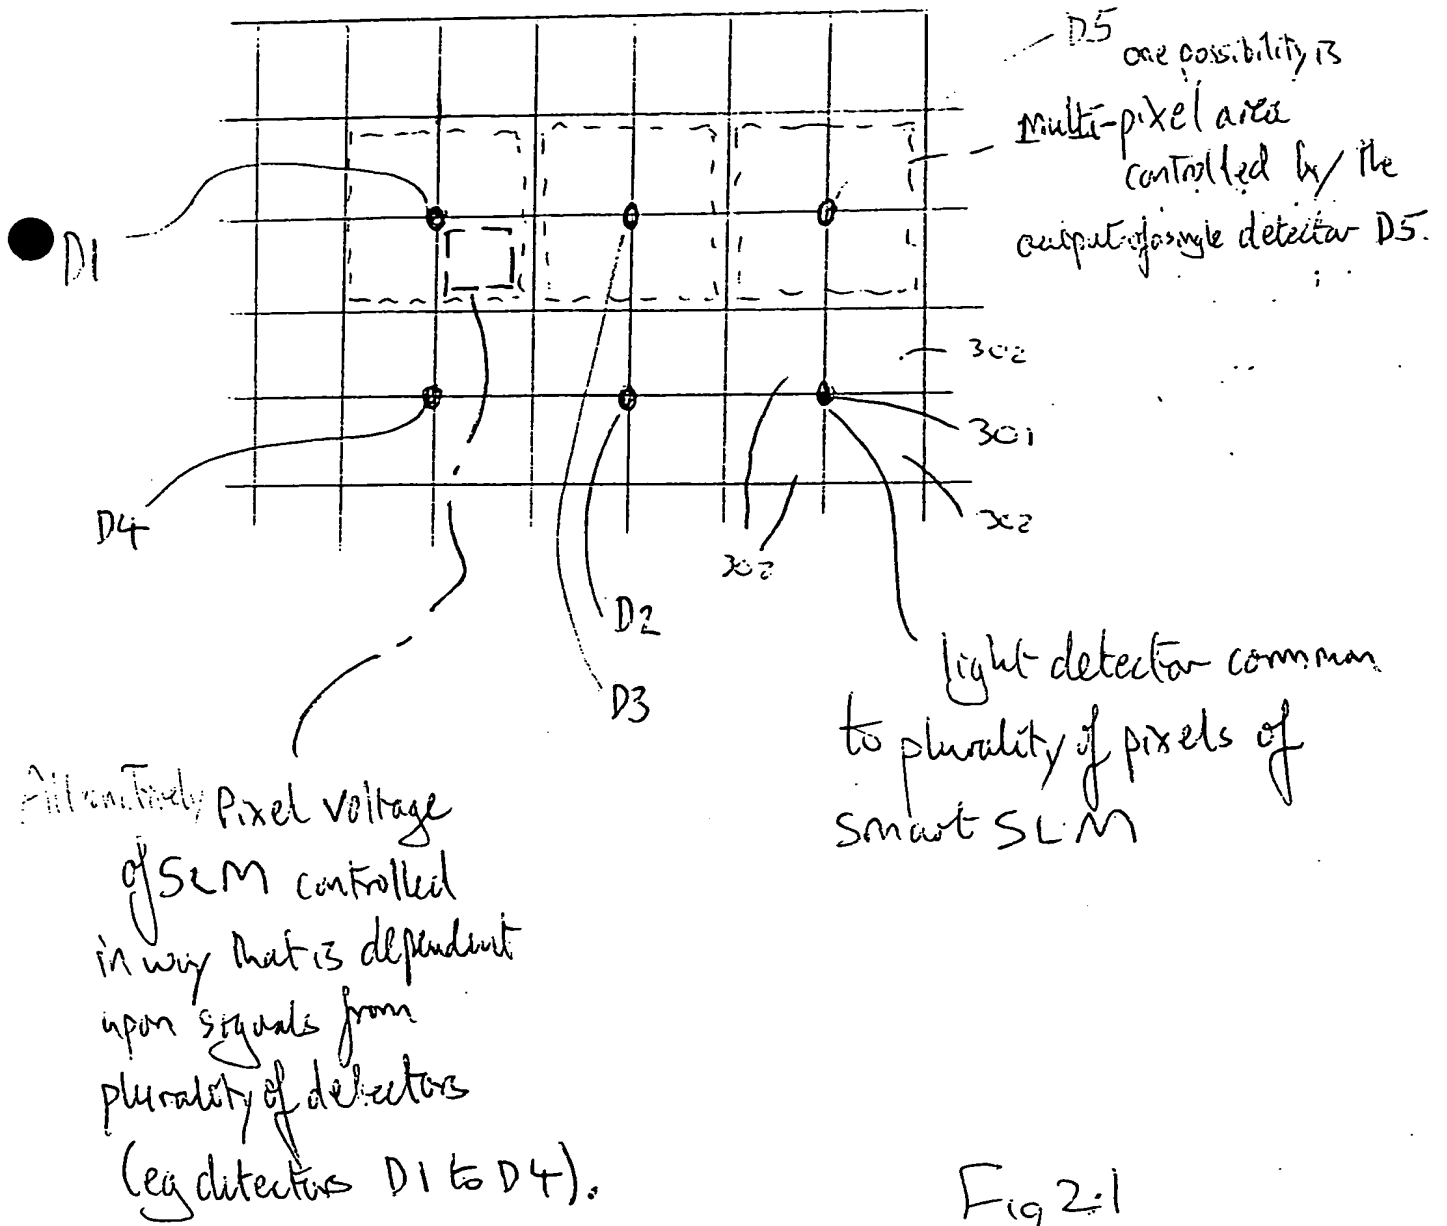 D5
one possibility is
Multi-pixel area
controlled by the
output of a single detector D5.
D1
302
301
D4
302
302
D2
D3
light detector common
to plurality of pixels of
smart SLM
Alternatively Pixel Voltage
of SLM controlled
in way that is dependent
upon signals from
plurality of detectors
(eg detectors D1 to D4).
Fig 2.1